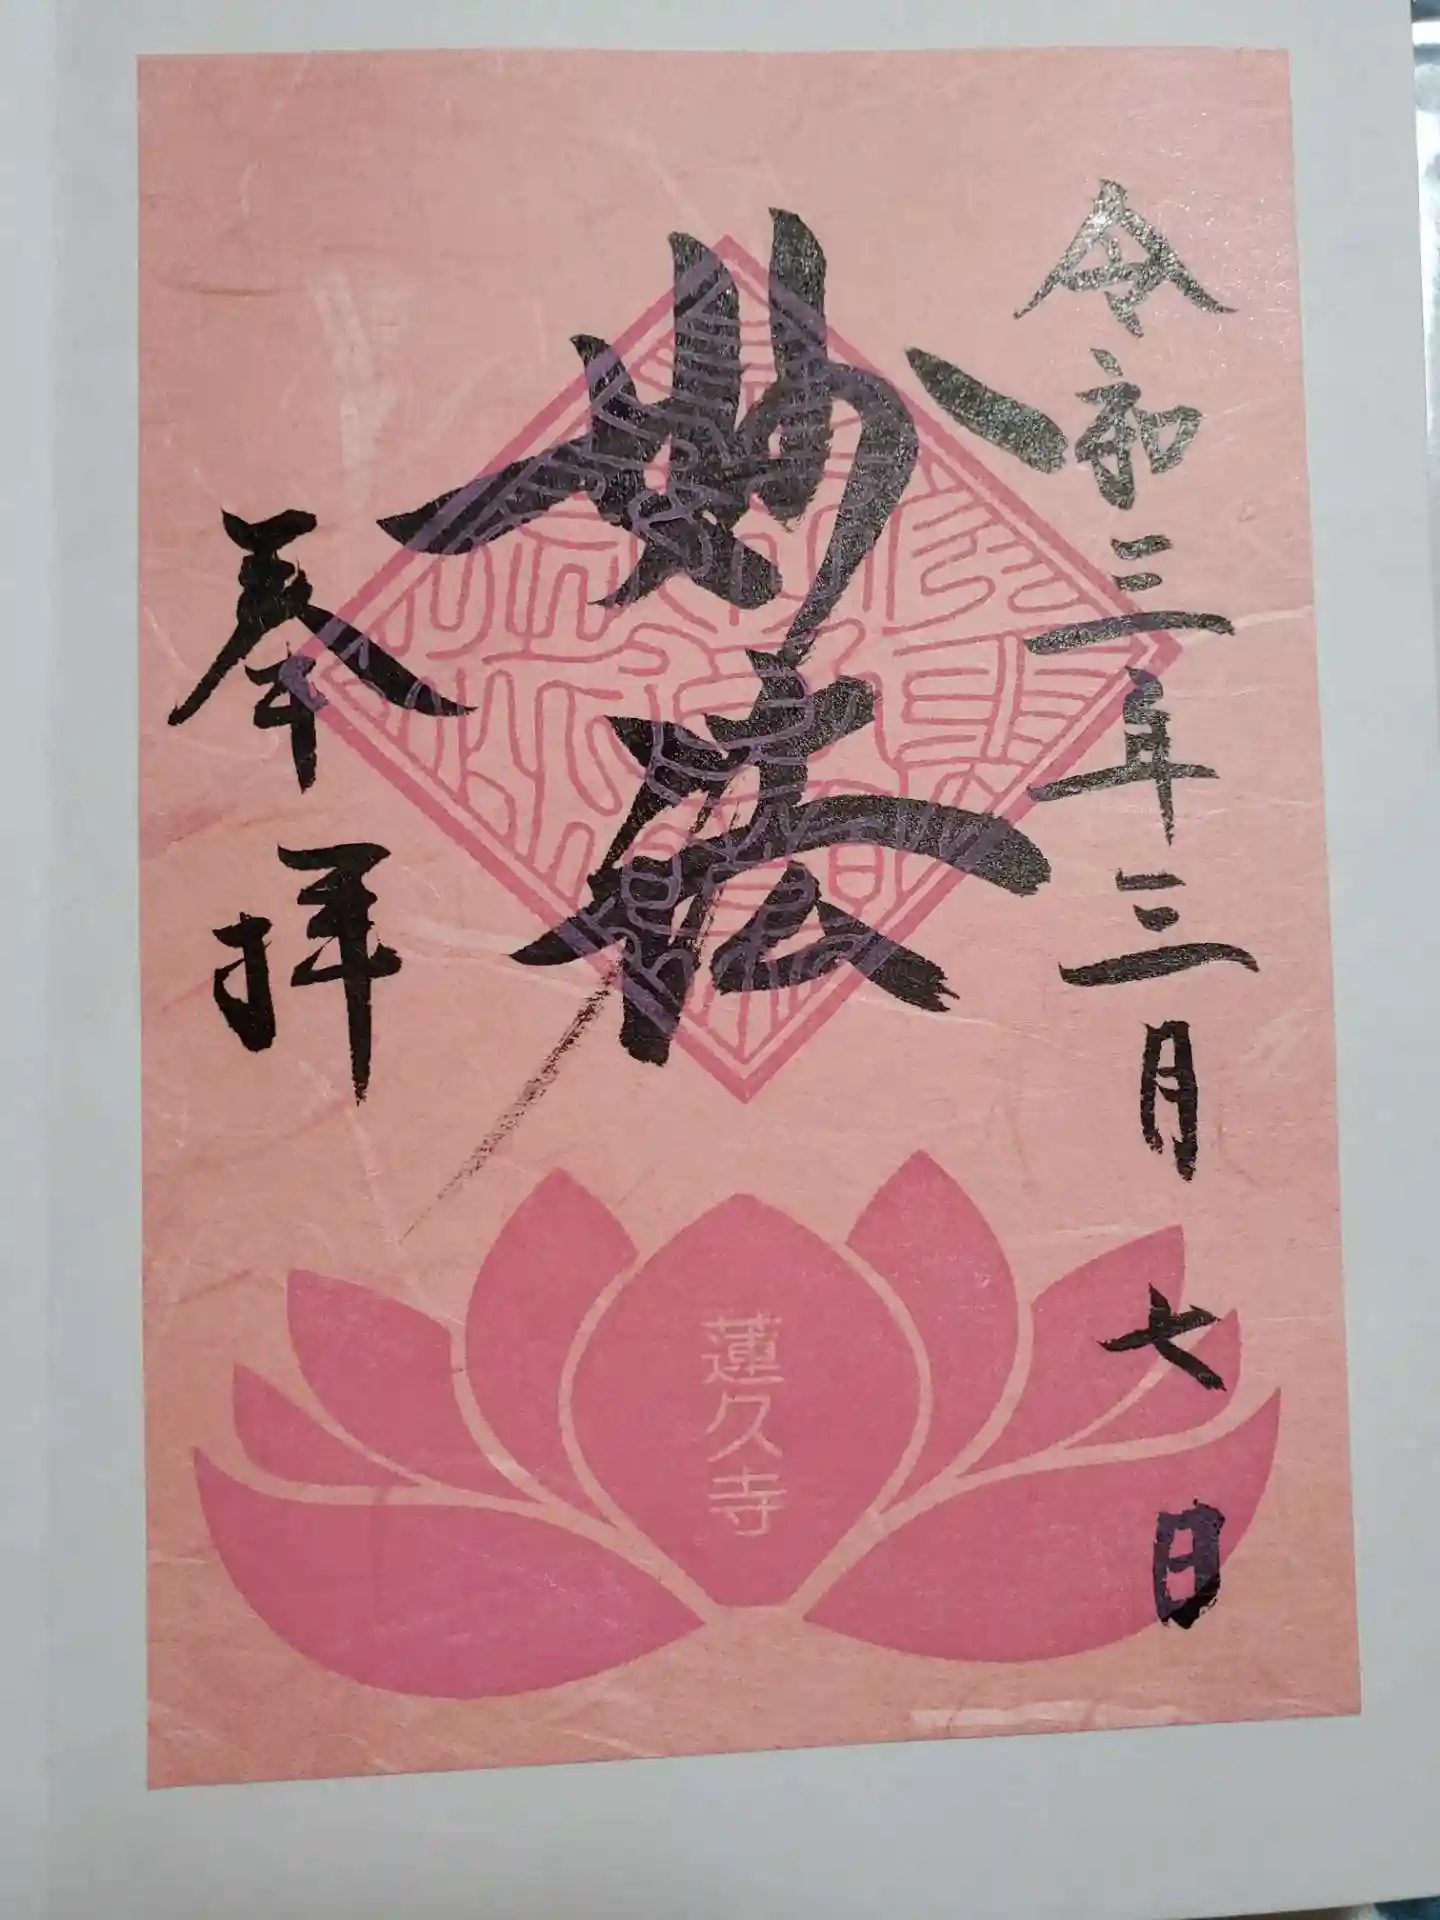 令和三年三月七日
妙法
奉拝
蓮久寺